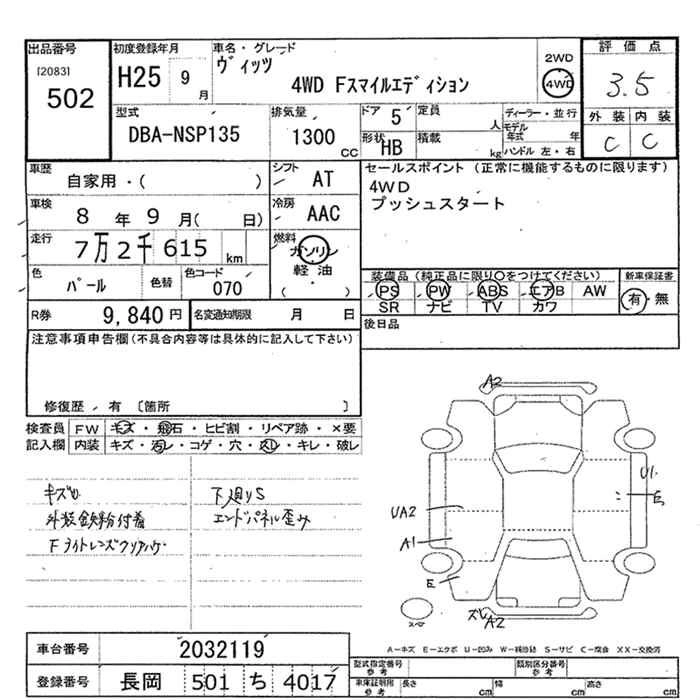 出品番号
[2083]
502
初度登録年月
H25 9月
車名・グレード
ヴィッツ
4WD Fスマイルエディション
2WD
4WD
評価点
3.5
外装 内装
C C
型式
DBA-NSP135
排気量
1300 CC
ドア 5
定員 人
形状 HB
積載 kg
ディーラー・並行
モデル年式 年
ハンドル 左・右
車歴
自家用・( )
シフト
AT
車検
8年9月( 日)
冷房
AAC
走行
7万2千615km
燃料
ガソリン
軽油
( ・ )
色
パール
色替
色コード
070
セールスポイント (正常に機能するものに限ります)
4WD
プッシュスタート
装備品 (純正品に限り○をつけてください)
PS PW ABS エアB AW
SR ナビ TV カワ
新車保証書
有・無
後日品
R券 9,840円
名変通知期限 月 日
注意事項申告欄 (不具合内容等は具体的に記入して下さい)
修復歴 有 〔箇所 〕
検査員記入欄
FW キズ・飛石・ヒビ割・リペア跡・×要
内装 キズ・汚レ・コゲ・穴・スレ・キレ・破レ
キズ
外装鉄粉付着
Fライトレンズクリアハゲ
下廻りS
エンドパネル歪み
A2
U1
E
UA2
A1
E
ズレ
A2
スペ
A-キズ E-エクボ U-凹み W-補修跡 S-サビ C-腐食 XX-交換済
車台番号
2032119
登録番号
長岡 501 ち 4017
型式指定番号 参考
類別区分番号 参考
車庫証明用 参考
長さ cm
幅 cm
高さ cm